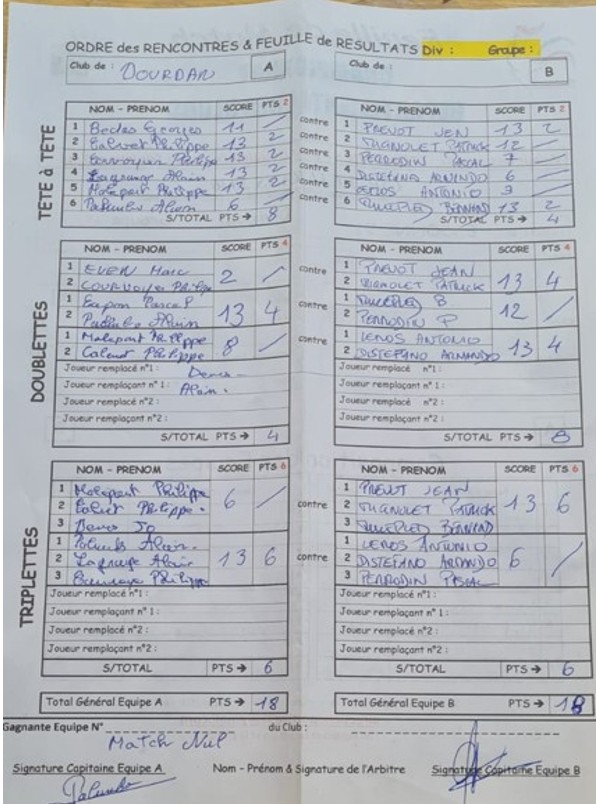 ORDRE des RENCONTRES & FEUILLE de RESULTATS Div : Groupe :
Club de : DOURDAN A
Club de : B
TETE à TETE
NOM - PRENOM SCORE PTS 2
1 Georges 11 /
2 Calvet Philippe 13 2
3 Philippe 13 2
4 Lagrange Alain 13 2
5 Malapert Philippe 13 2
6 Palumbo Alain 6 /
S/TOTAL PTS → 8
contre
contre
contre
contre
contre
contre
NOM - PRENOM SCORE PTS 2
1 PREVOT JEN 13 2
2 PATRICK 12 /
3 PERRODIN PASCAL 7 /
4 DISTEFANO ARMANDO 6 /
5 ANTONIO 9 /
6 BERNARD 13 2
S/TOTAL PTS → 4
DOUBLETTES
NOM - PRENOM SCORE PTS 4
1 EVEN Marc 2 /
2 Philippe
1 Pascal 13 4
2 Palumbo Alain
1 Malapert Philippe 8 /
2 Calvet Philippe
Joueur remplacé n°1 :
Joueur remplaçant n° 1 : Alain.
Joueur remplacé n°2 :
Joueur remplaçant n°2 :
S/TOTAL PTS → 4
contre
contre
contre
NOM - PRENOM SCORE PTS 4
1 PREVOT JEAN 13 4
2 PATRICK
1 B 12 /
2 PERRODIN P
1 ANTONIO 13 4
2 DISTEFANO ARMANDO
Joueur remplacé n°1 :
Joueur remplaçant n° 1 :
Joueur remplacé n°2 :
Joueur remplaçant n°2 :
S/TOTAL PTS → 8
TRIPLETTES
NOM - PRENOM SCORE PTS 6
1 Malapert Philippe 6 /
2 Calvet Philippe.
3
1 Palumbo Alain. 13 6
2 Lagrange Alain
3 Philippe
Joueur remplacé n°1 :
Joueur remplaçant n° 1 :
Joueur remplacé n°2 :
Joueur remplaçant n°2 :
S/TOTAL PTS → 6
contre
contre
NOM - PRENOM SCORE PTS 6
1 PREVOT JEAN 13 6
2 PATRICK
3 BERNARD
1 ANTONIO 6 /
2 DISTEFANO ARMANDO
3 PERRODIN PASCAL
Joueur remplacé n°1 :
Joueur remplaçant n° 1 :
Joueur remplacé n°2 :
Joueur remplaçant n°2 :
S/TOTAL PTS → 6
Total Général Equipe A PTS → 18
Total Général Equipe B PTS → 18
Gagnante Equipe N° du Club :
Match Nul
Signature Capitaine Equipe A Nom - Prénom & Signature de l'Arbitre Signature Capitaine Equipe B
Palumbo